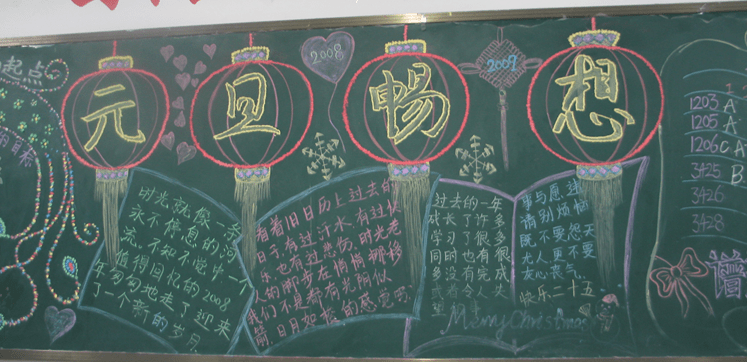 元旦畅想
2008
2009
起点
时光就像一条
永不停息的河
流,不知不觉中,一个
值得回忆的2008
年匆匆地走了迎来
了一个新的岁月
看着旧日历上过去的
日子,有过汗水,有过快
乐,也有过悲伤,时光老
人的脚步在悄悄挪移
我们不是都有光阴似
箭,日月如梭的感觉
过去的一年
成长了许多
学习了很多
同时也有很
多没有完成
或者令人失
望
事与愿违
请别烦恼
既不要怨天
尤人更不要
灰心丧气。
快乐二十五
Merry Christmas
1
1203 A
1205 A
1206 C A
3425 B
3426
3428